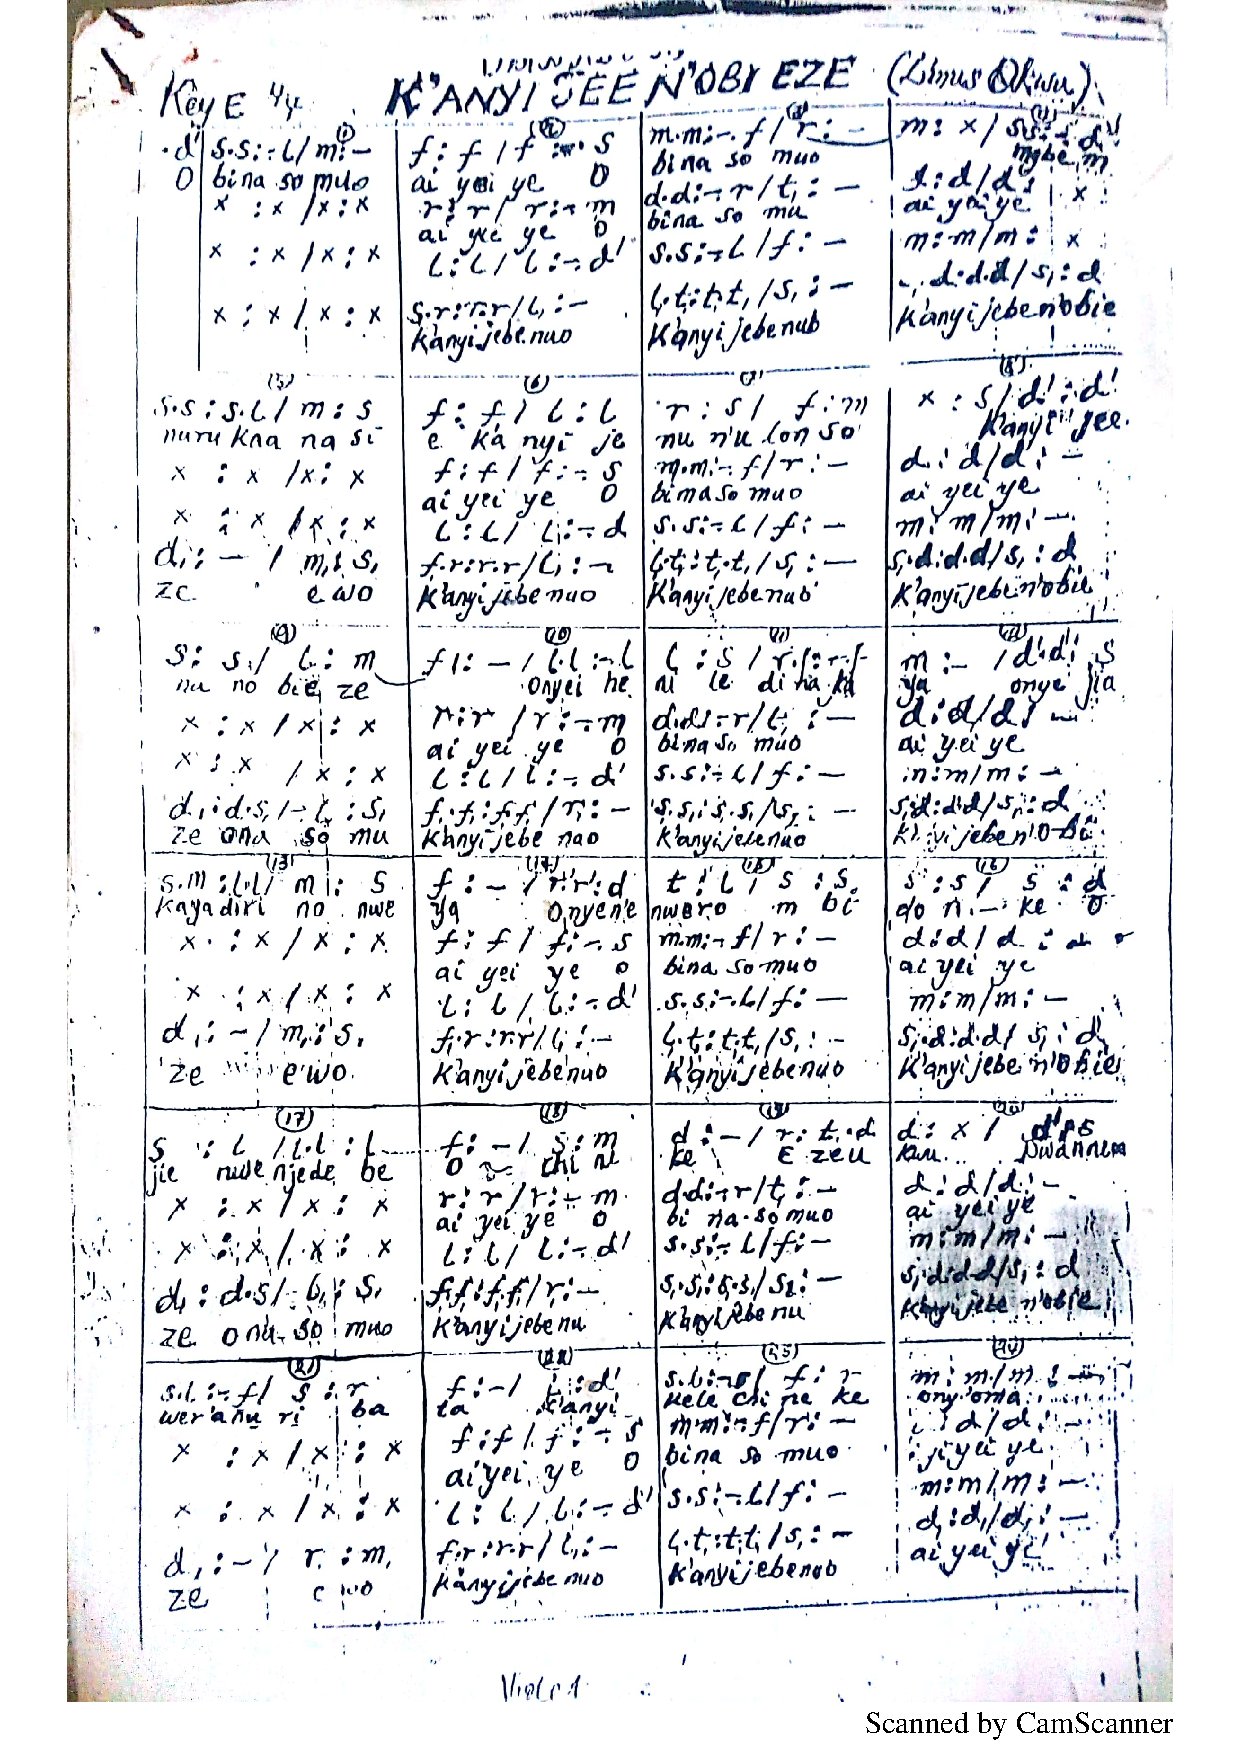 Key E 4/4 K'ANYI JEE N'OBI EZE (Linus Okwu)
(1)
.d' s.s:-.l/m:-
O bi na so muo
x :x /x:x
x :x /x:x
x :x /x:x
(2)
f: f / f :-. s
ai yei ye O
r:r/ r:-. m
ai yei ye O
l:l/ l:-. d'
s.r:r.r/l,:-
K'anyi jebe nuo
(3)
m.m:-.f/r:-
bi na so muo
d.d:-.r/t,:-
bi na so mu
s.s:-.l/f:-
l,.t,:t,.t,/s,:-
K'anyi jebe nub
(4)
m: x/
mgbe m
d:d/d: x
ai yei ye
m:m/m: x
d.d.d/s,:d
K'anyi jebe n'obie
(5)
s.s:s.l/ m:s
nuru kna na si
x :x /x:x
x :x /x:x
d,:- / m,:s,
ze e wo
(6)
f: f/ l:l
e ka nyi je
f:f/ f:-. s
ai yei ye O
l:l/ l:-. d
f,.r:r.r/l,:-
K'anyi jebe nuo
(7)
r:s/ f:m
nu n'u lon so
m.m:-.f/r:-
bi ma so muo
s.s:-.l/f:-
l,.t,:t,.t,/s,:-
K'anyi jebe nuo
(8)
x :s/d':d'
K'anyi jee.
d:d/d:-
ai yei ye
m:m/m:-
s,.d:d.d/s,:d
K'anyi jebe n'obie
(9)
s: s/ l:m
nu no bie ze
x :x /x:x
x :x /x:x
d,:d.s,/-.l,:s,
ze onu so mu
(10)
f:- / l.l:-.l
onyei he
r:r /r:-. m
ai yei ye O
l:l/l:-. d'
f,.f,:f,.f,/r,:-
K'anyi jebe nao
(11)
l:s/
ni le di na ka
d.d:-.r/t,:-
bi na so muo
s.s:-.l/f:-
s,.s,:s,.s,/s,:-
K'anyi jebe nuo
(12)
m:- /d'.d': s
ya onye jia
d:d/d:-
ai yei ye
m:m/m:-
s,.d:d.d/s,:d
(13)
s.m:l.l/ m:s
Kaya diri no nwe
x :x /x:x
x :x /x:x
d,:-/ m,:s,
ze e wo.
(14)
f:-/r'.r':d
ya Onyene
f:f/ f:-. s
ai yei ye o
l:l/ l:-. d'
f,.r:r.r/l,:-
K'anyi jebe nuo
(15)
t:l/ s:s.
nwe ro m bi
m.m:-.f/r:-
bi na so muo
s.s:-.l/f:-
l,.t,:t,.t,/s,:-
K'anyi jebe nuo
(16)
s:s/ s:d
do n. - ke O
d:d/d:
ai yei ye
m:m/m:-
s,.d:d.d/ s,:d
K'anyi jebe n'obie
(17)
s :l /l.l:l
jie nwe njede be
x :x /x:x
x :x /x:x
d,:d.s/-.l,:s,
ze onu so muo
(18)
f:-/ s:m
O chi ni
r:r/r:-. m
ai yei ye O
l:l/ l:-. d'
f,.f,:f,.f,/r,:-
K'anyi jebe nu
(19)
d:-/ r:t,.d
ke E zeu
d.d:-.r/t,:-
bi na so muo
s.s:-.l/f:-
s,.s,:s,.s,/s,:-
K'anyi jebe nu
(20)
d: x/
Nwanne m
d:d/d:-
ai yei ye
m:m/m:-
s,.d:d.d/s,:d
K'anyi jebe n'obie
(21)
s.l:-.f/ s:r
wer'anu ri ba
x :x /x:x
x :x /x:x
d,:-/ r,:m,
ze e wo
(22)
f:-/ :d'
ta K'anyi
f:f/ f:-. s
ai yei ye O
l:l/ l:-. d'
f,.r:r.r/l,:-
K'anyi jebe nuo
(23)
Kele chi ne ke
m.m:-.f/r:-
bi na so muo
s.s:-.l/f:-
l,.t,:t,.t,/s,:-
K'anyi jebe nuo
(24)
m:m/m:-
ony'oma
d/d:-
yei ye
m:m/m:-
d,:d,/d,:-
ai yei ye
Scanned by CamScanner